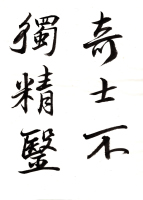 奇士不
獨精毉